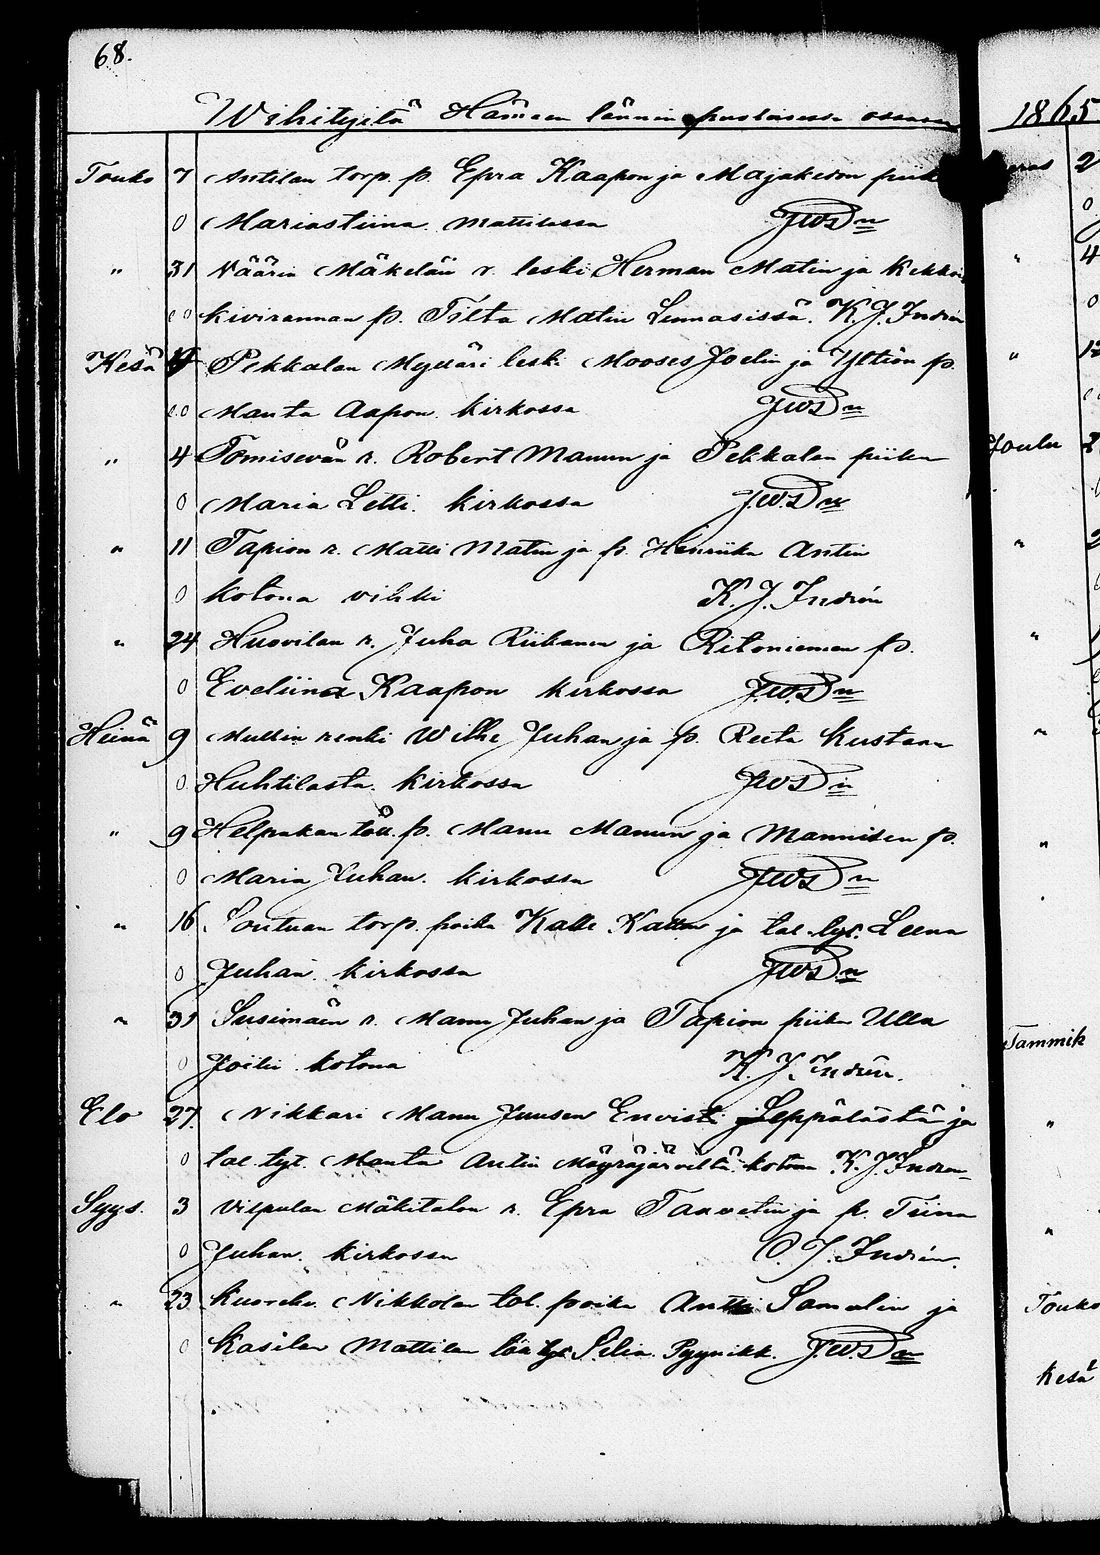 68.
Wihityitä Hämeen läänin puolisessa osassa
Touko 7 Antilan torp. p. Epra Kaapon ja Majakedon piik
0 Mariastiina Mattilassa JWSDn
" 31 Näärin Mäkelän r. leski Herman Matin ja Kekkoi
00 kivirannan p. Tilta Matin Linnasissä. K. J. Indrén
Kesä Pekkalan Mylläri leski Mooses Joelin ja Yltiön p.
00 Manta Aapon kirkossa JWSDn
" 4 Tomisevan r. Robert Manun ja Pekkalan piika
0 Maria Letti. kirkossa J.W.SDn
" 11 Tapion r. Matti Matin ja p. Henriika Antin
0 kotona vihki K. J. Indrén
" 24 Huovilan r. Juha Riihanen ja Ritoniemen p.
0 Eveliina Kaapon kirkossa J.W.SDn
Heinä 9 Mullin renki Wille Juhan ja p. Reeta Kustaan
0 Huhtilasta. kirkossa JWSDn
" 9 Helpakan töll. p. Manu Manun ja Mannisen p.
0 Maria Juhan. kirkossa JWSDn
" 16 Soutuan torp. poika Kalle Kallen ja tal. tyt. Leena
0 Juhan kirkossa JWSDn
" 31 Susimäen r. Manu Juhan ja Tapion piika Ulla
0 Joelin kotona K. J. Indrén.
Elo 27 Nikkari Manu Juusen Envist Leppälästä ja
0 tal. tyt. Manta Antin Mäyräjärveltä. kotona K. J. Indrén
Syys. 3 Vilpulan Mäkitalon r. Epra Taavetin ja p. Tiina
0 Juhan. kirkossa K. J. Indrén.
" 23 Kuoreh. Nikkolan tal. poika Antti Samulin ja
0 Kasilan Mattilan tal tyt Silia. Pyynikk. J.W.SDn
1865
2
0
" 4
0
" 12
Joulu
"
"
"
"
"
Tammik
"
"
Touko
Kesä